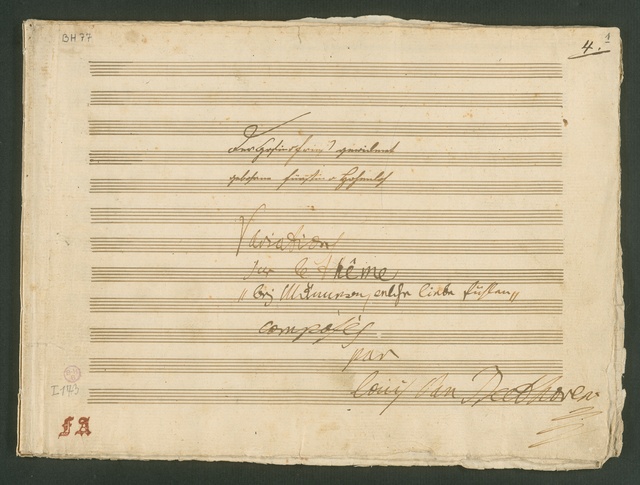 BH 77
4. 1
gewidmet
gebohrne Fürstin
Variation
Sur le thême
„bey Männern, welche liebe fühlen„
composées
par
louis van Beethoven
I 143
FA